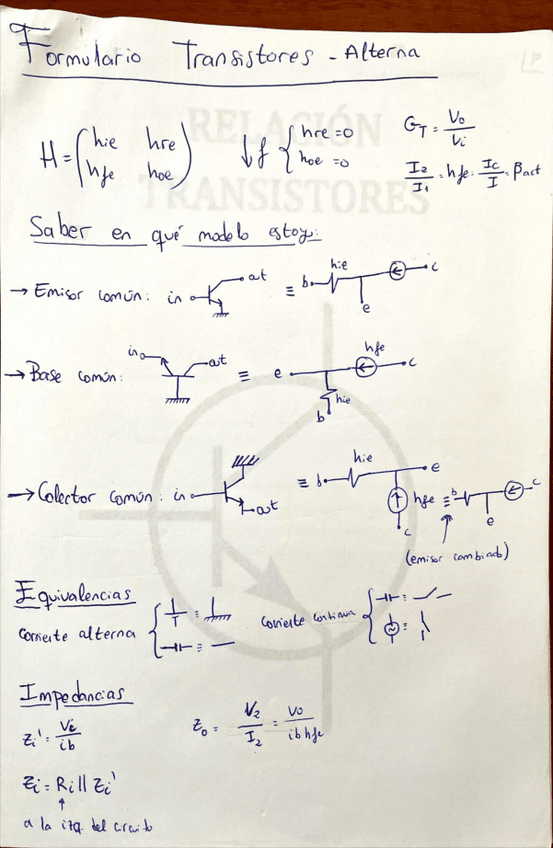 Formulario Transistores - Alterna
RELACIÓN
TRANSISTORES
H = (hie hre
hfe hoe)
↓f { hre = 0
hoe = 0
GT = Vo / Vi
I2 / I1 = hfe = Ic / I = βact
Saber en qué modelo estoy:
→ Emisor común: in out ≡ b hie e c
→ Base común: in out ≡ e hfe c hie b
→ Colector común: in out ≡ b hie e hfe c ≡ b e c
(emisor cambiado)
Equivalencias
corriente alterna { ≡ ≡
corriente continua { ≡ ≡
Impedancias
Zi' = Vi / ib
Zo = V2 / I2 = Vo / ib hfe
Zi = Ri || Zi'
↑
a la izq del circuito